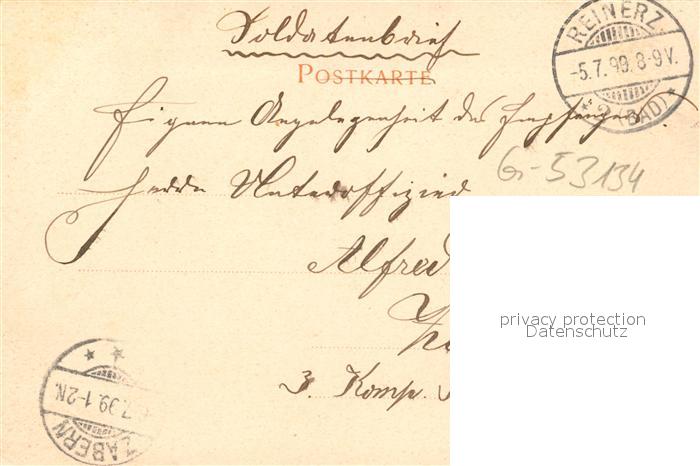 Soldatenbrief
POSTKARTE
REINERZ.
-5.7.99.8-9V.
* 2 (BAD) *
Eigene Angelegenheit des Empfängers
G-53134
Herrn Unteroffizier
Alfred
privacy protection
Datenschutz
3. Komp.
7.99.1-2N.
ZABERN